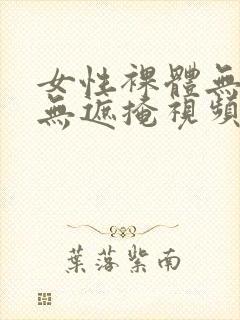 女性裸體無
無遮掩視頻
葉落紫南